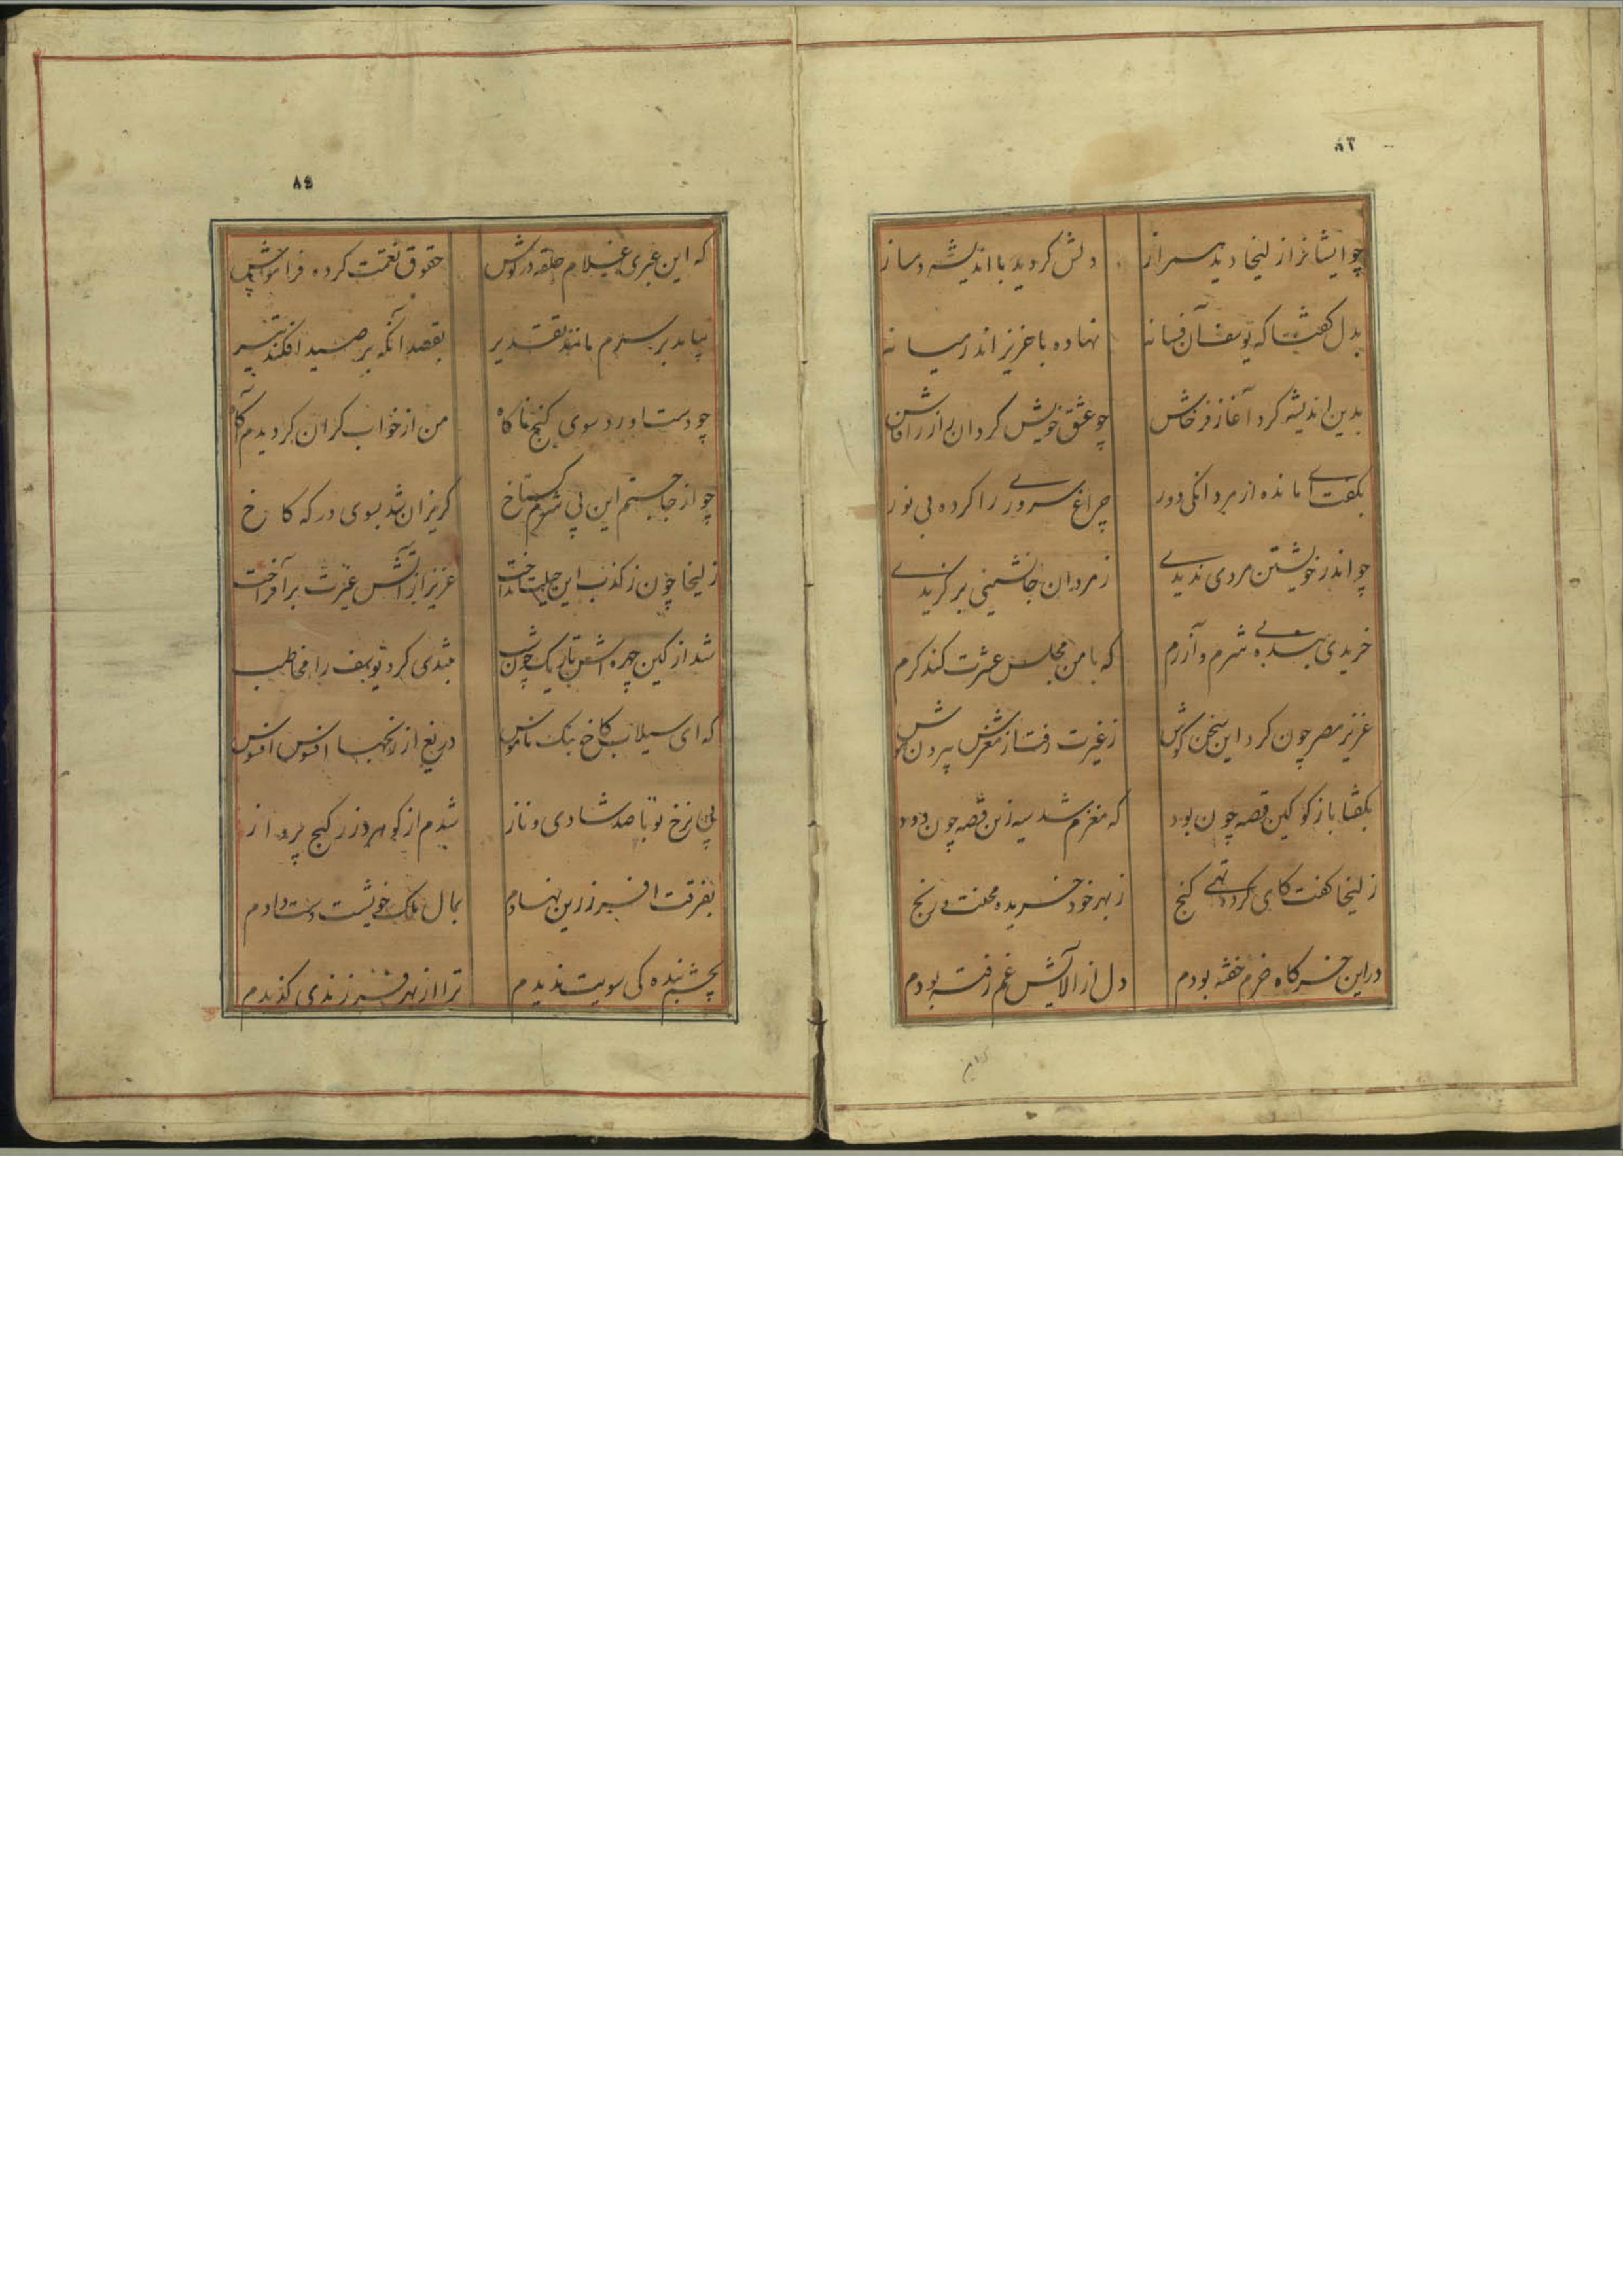 ۸۳
چو ایشانرا زلیخا دید همراز دلش کردید با اندیشه دمساز
بدل کفتا که یوسف آن فسانه نهاده با عزیز اندر میانه
بدین اندیشه کرد آغاز فرخاش چو عشق خویش کرد آن راز را فاش
بکفت ای مانده از مردانکی دور چراغ سروری را کرده بی نور
چو اندر خویشتن مردی ندیدی ز مردان جانشینی برکزیدی
خریدی بنده بی شرم و آزرم که با من مجلس عشرت کند کرم
عزیز مصر چون کرد این سخن کوش ز غیرت رفت از مغزش بیرون هوش
بکفتا بازکو کین قصه چون بود که مغزم شد سیه زین قصه چون دود
زلیخا کفت کای کرده تهی کنج ز بهر خود خریده محنت و رنج
در این خرکاه خرم خفته بودم دل از الایش غم رفته بودم
۸۴
که این عبری غلام حلقه در کوش حقوق نعمتت کرده فراموش
بیامد بر سرم مانند تقدیر بقصد آنکه بر صید افکند تیر
چو دست اورد سوی کنج ناکاه من از خواب کران کردیدم آکاه
چو از جا جستم این بی شرم کستاخ کریزان شد بسوی درکه کاخ
زلیخا چون ز کذب این حیلت انداخت عزیز از آتش غیرت برآفراخت
شد از کین چهره اش تاریک چون شب بتندی کرد یوسف را مخاطب
که ای سیلاب کاخ ننک و ناموس دریغ از رنجها افسوس افسوس
پی نرخ تو با صد شادی و ناز شدم از کوهر و زر کنج پرداز
بفرقت افسر زرین نهادم بمال و ملک خویشت دست دادم
بچشم بنده کی سویت ندیدم ترا از بهر فرزندی کزیدم